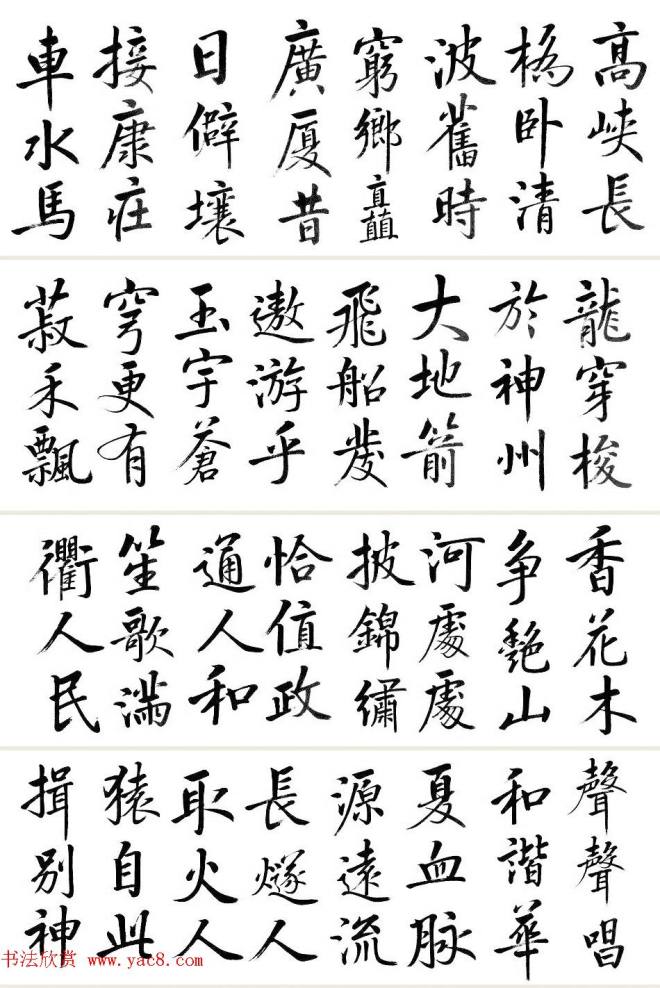 高峡長
橋卧清
波舊時
窮鄉矗
廣厦昔
日僻壤
接康庄
車水馬
龍穿梭
於神州
大地箭
飛船發
遨游乎
玉宇蒼
穹更有
菽禾飄
香花木
争艷山
河處處
披錦繡
恰值政
通人和
笙歌滿
衢人民
聲聲唱
和諧華
夏血脉
源遠流
長燧人
取火人
猿自此
揖别神
书法欣赏 www.yac8.com